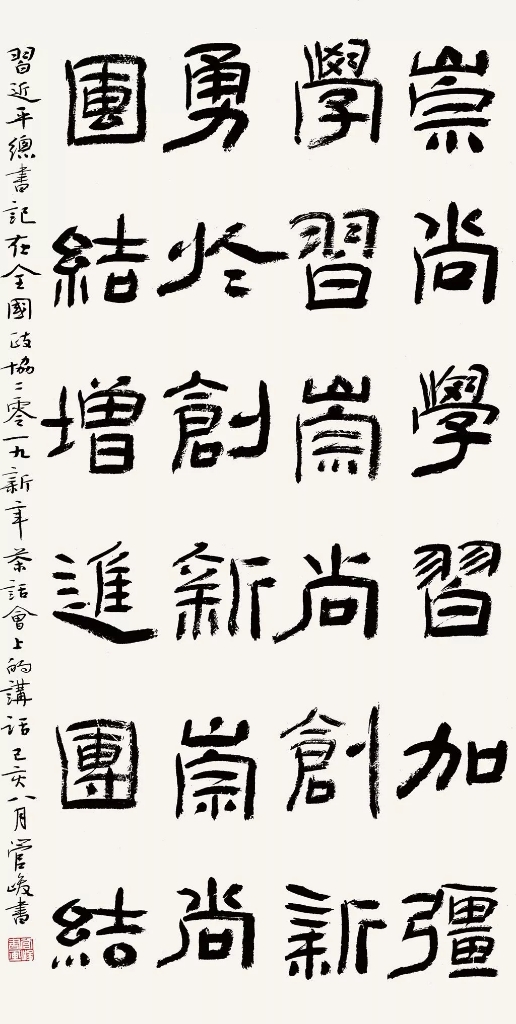 崇尚學習加彊
學習崇尚創新
勇於創新崇尚
團結增進團結
習近平總書記在全國政協二零一九新年茶話會上的講話己亥八月管峻書